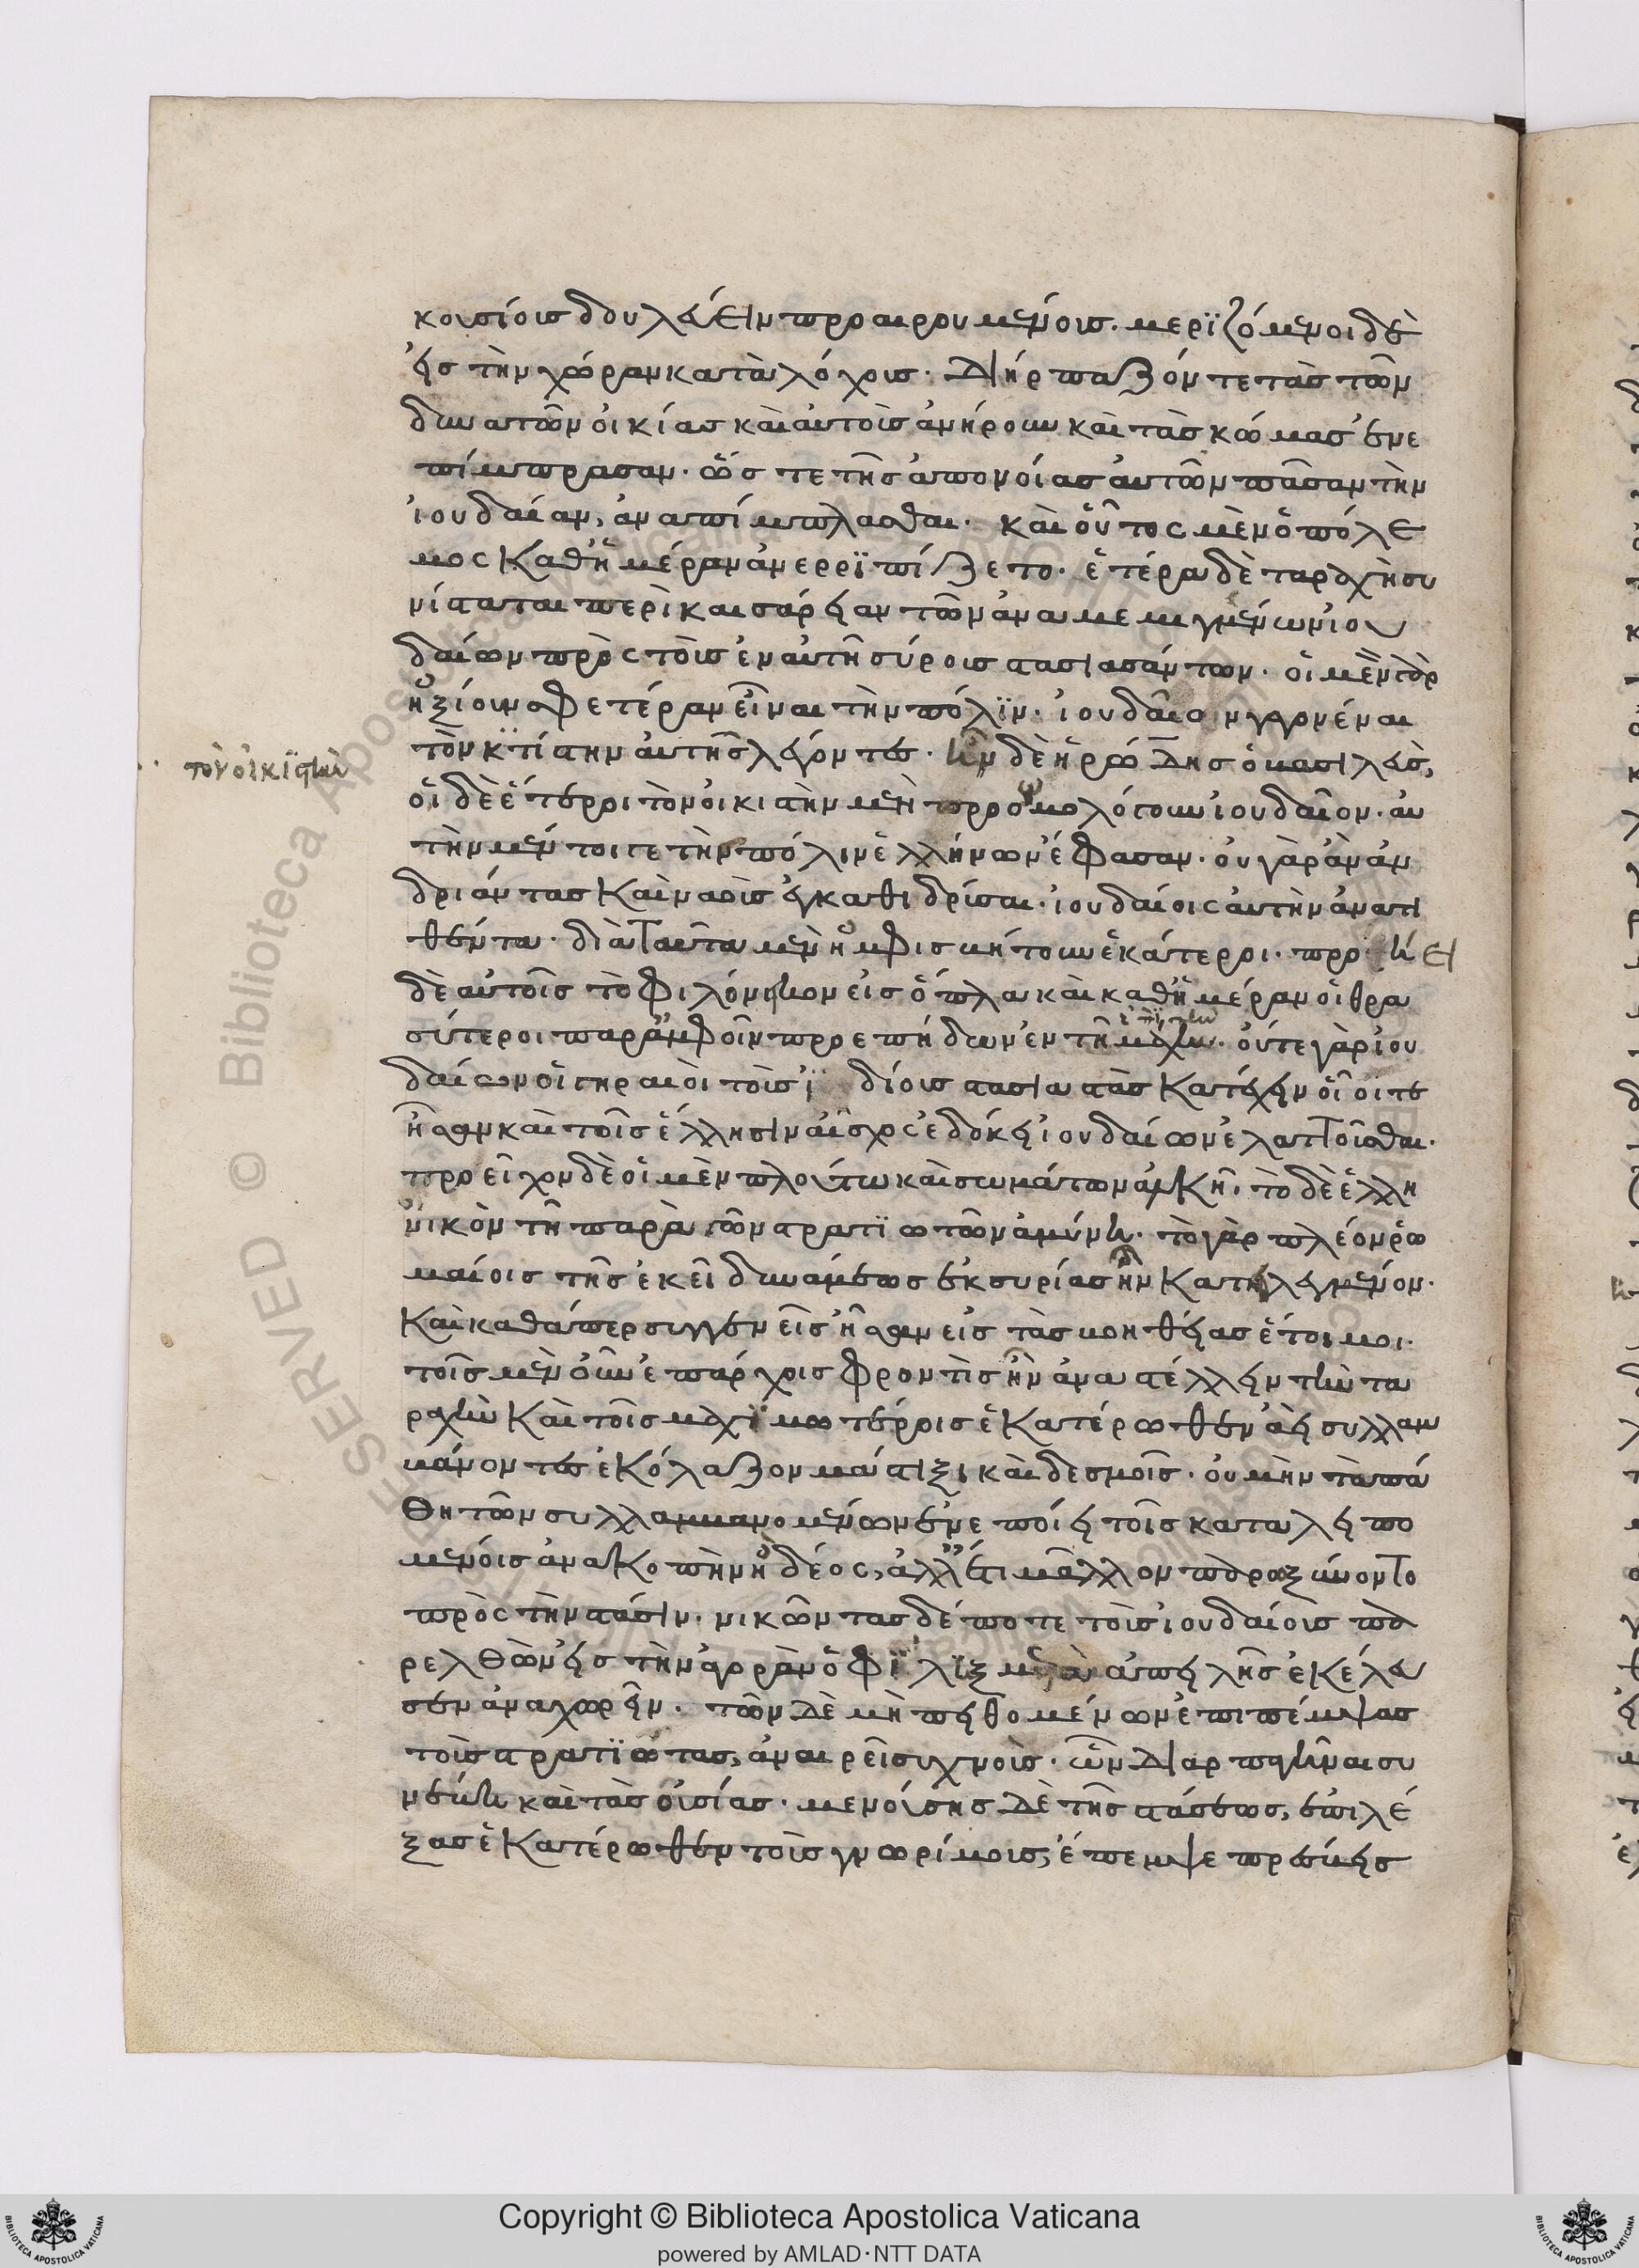 κουσίους δουλεύειν προαιρουμένους. μεριζόμενοι δὲ
εἰς τὴν χώραν κατὰ λόχους. διήρπαζόν τε τὰς τῶν
δυνατῶν οἰκίας καὶ αὐτοὺς ἀνήρουν καὶ τὰς κώμας ἐνε
πίμπρασαν. ὥς τε τῆς ἀπονοίας αὐτῶν πᾶσαν τὴν
ἰουδαίαν, ἀναπίμπλασθαι. καὶ οὗτος μὲν ὁ πόλε
μος καθ' ἡμέραν ἀνερριπίζετο. ἑτέρα δὲ ταραχὴ συ
νίσταται περὶ καισάρειαν τῶν ἀναμεμιγμένων ἰου
δαίων πρὸς τοὺς ἐν αὐτῇ σύρους στασιασάντων. οἱ μὲν γὰρ
ἠξίουν σφετέραν εἶναι τὴν πόλϊν. ἰουδαῖον γεγονέναι
τὸν κτίστην αὐτῆς λέγοντες. ἦν δὲ ἡρώδης ὁ βασιλεύς,
τὸν οἰκϊστὴν
οἱ δὲ ἕτεροι τὸν οἰκιστὴν μὲν προσωμολόγουν ἰουδαῖον. αὐ
τὴν μέν τοι γε τὴν πόλιν ἑλλήνων ἔφασαν. οὐ γὰρ ἂν ἀν
δριάντας καὶ ναοὺς ἐγκαθιδρύσαι. ἰουδαίοις αὐτὴν ἀνατι
θέντα. διὰ ταῦτα μὲν ἠμφισβήτουν ἑκάτεροι. προῄει
δὲ αὐτοῖς τὸ φιλόνεικον εἰς ὅπλα καὶ καθ' ἡμέραν οἱ θρα
σύτεροι παρ' ἀμφοῖν προεπήδων ἐν τῇ μάχῃ. οὔτε γὰρ ἰου
δαίων οἱ γηραιοὶ τοὺς ἰδίους στασιαστὰς κατέχειν οἷοί τε
ἦσαν καὶ τοῖς ἕλλησιν αἶσχος ἐδόκει ἰουδαίων ἐλαττοῦσθαι.
προεῖχον δὲ οἱ μὲν πλούτω καὶ σωμάτων ἀλκῇ. τὸ δὲ ἑλλη
νικὸν τῇ παρὰ τῶν στρατϊωτῶν ἀμύνῃ. τὸ γὰρ πλέον ῥω
μαίοις τῆς ἐκεῖ δυνάμεως ἐκ συρίας ἦν κατειλεγμένον.
καὶ καθάπερ συγγενεῖς ἦσαν εἰς τὰς βοηθείας ἕτοιμοι.
τοῖς μὲν οὖν ἐπάρχοις φροντὶς ἦν ἀναστέλλειν τὴν τα
ραχὴν καὶ τοὺς μαχϊμωτέρους ἑκατέρωθεν ἀεὶ συλλαμ
βάνοντες ἐκόλαζον μάστιξι καὶ δεσμοῖς. οὐ μὴν τὰ πά
θη τῶν συλλαμβανομένων ἐνεποίει τοῖς καταλειπο
μένοις ἀνακοπὴν ἢ δέος, ἀλλ' ἔτι μᾶλλον παρωξύνοντο
πρὸς τὴν στάσιν. νικῶντας δέ ποτε τοὺς ἰουδαίους πα
ρελθὼν εἰς τὴν ἀγορὰν ὁ φϊλϊξ μετὰ ἀπειλῆς ἐκέλευ
σεν ἀναχωρεῖν. τῶν δὲ μὴ πειθομένων ἐπιπέμψας
τοὺς στρατϊώτας, ἀναιρεῖ συχνούς. ὧν διαρπαγῆναι συ
νέβη καὶ τὰς οὐσίας. μενούσης δὲ τῆς στάσεως, ἐπιλέ
ξας ἑκατέρωθεν τοὺς γνωρίμους, ἔπεμψε πρέσβεις